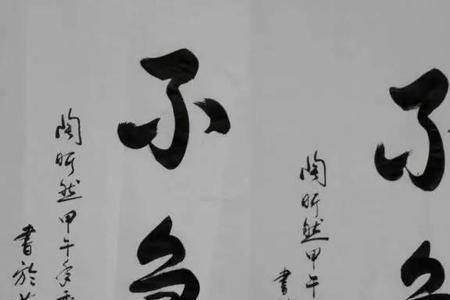 不
陶昕然甲午
書
不
陶昕然甲午
書於